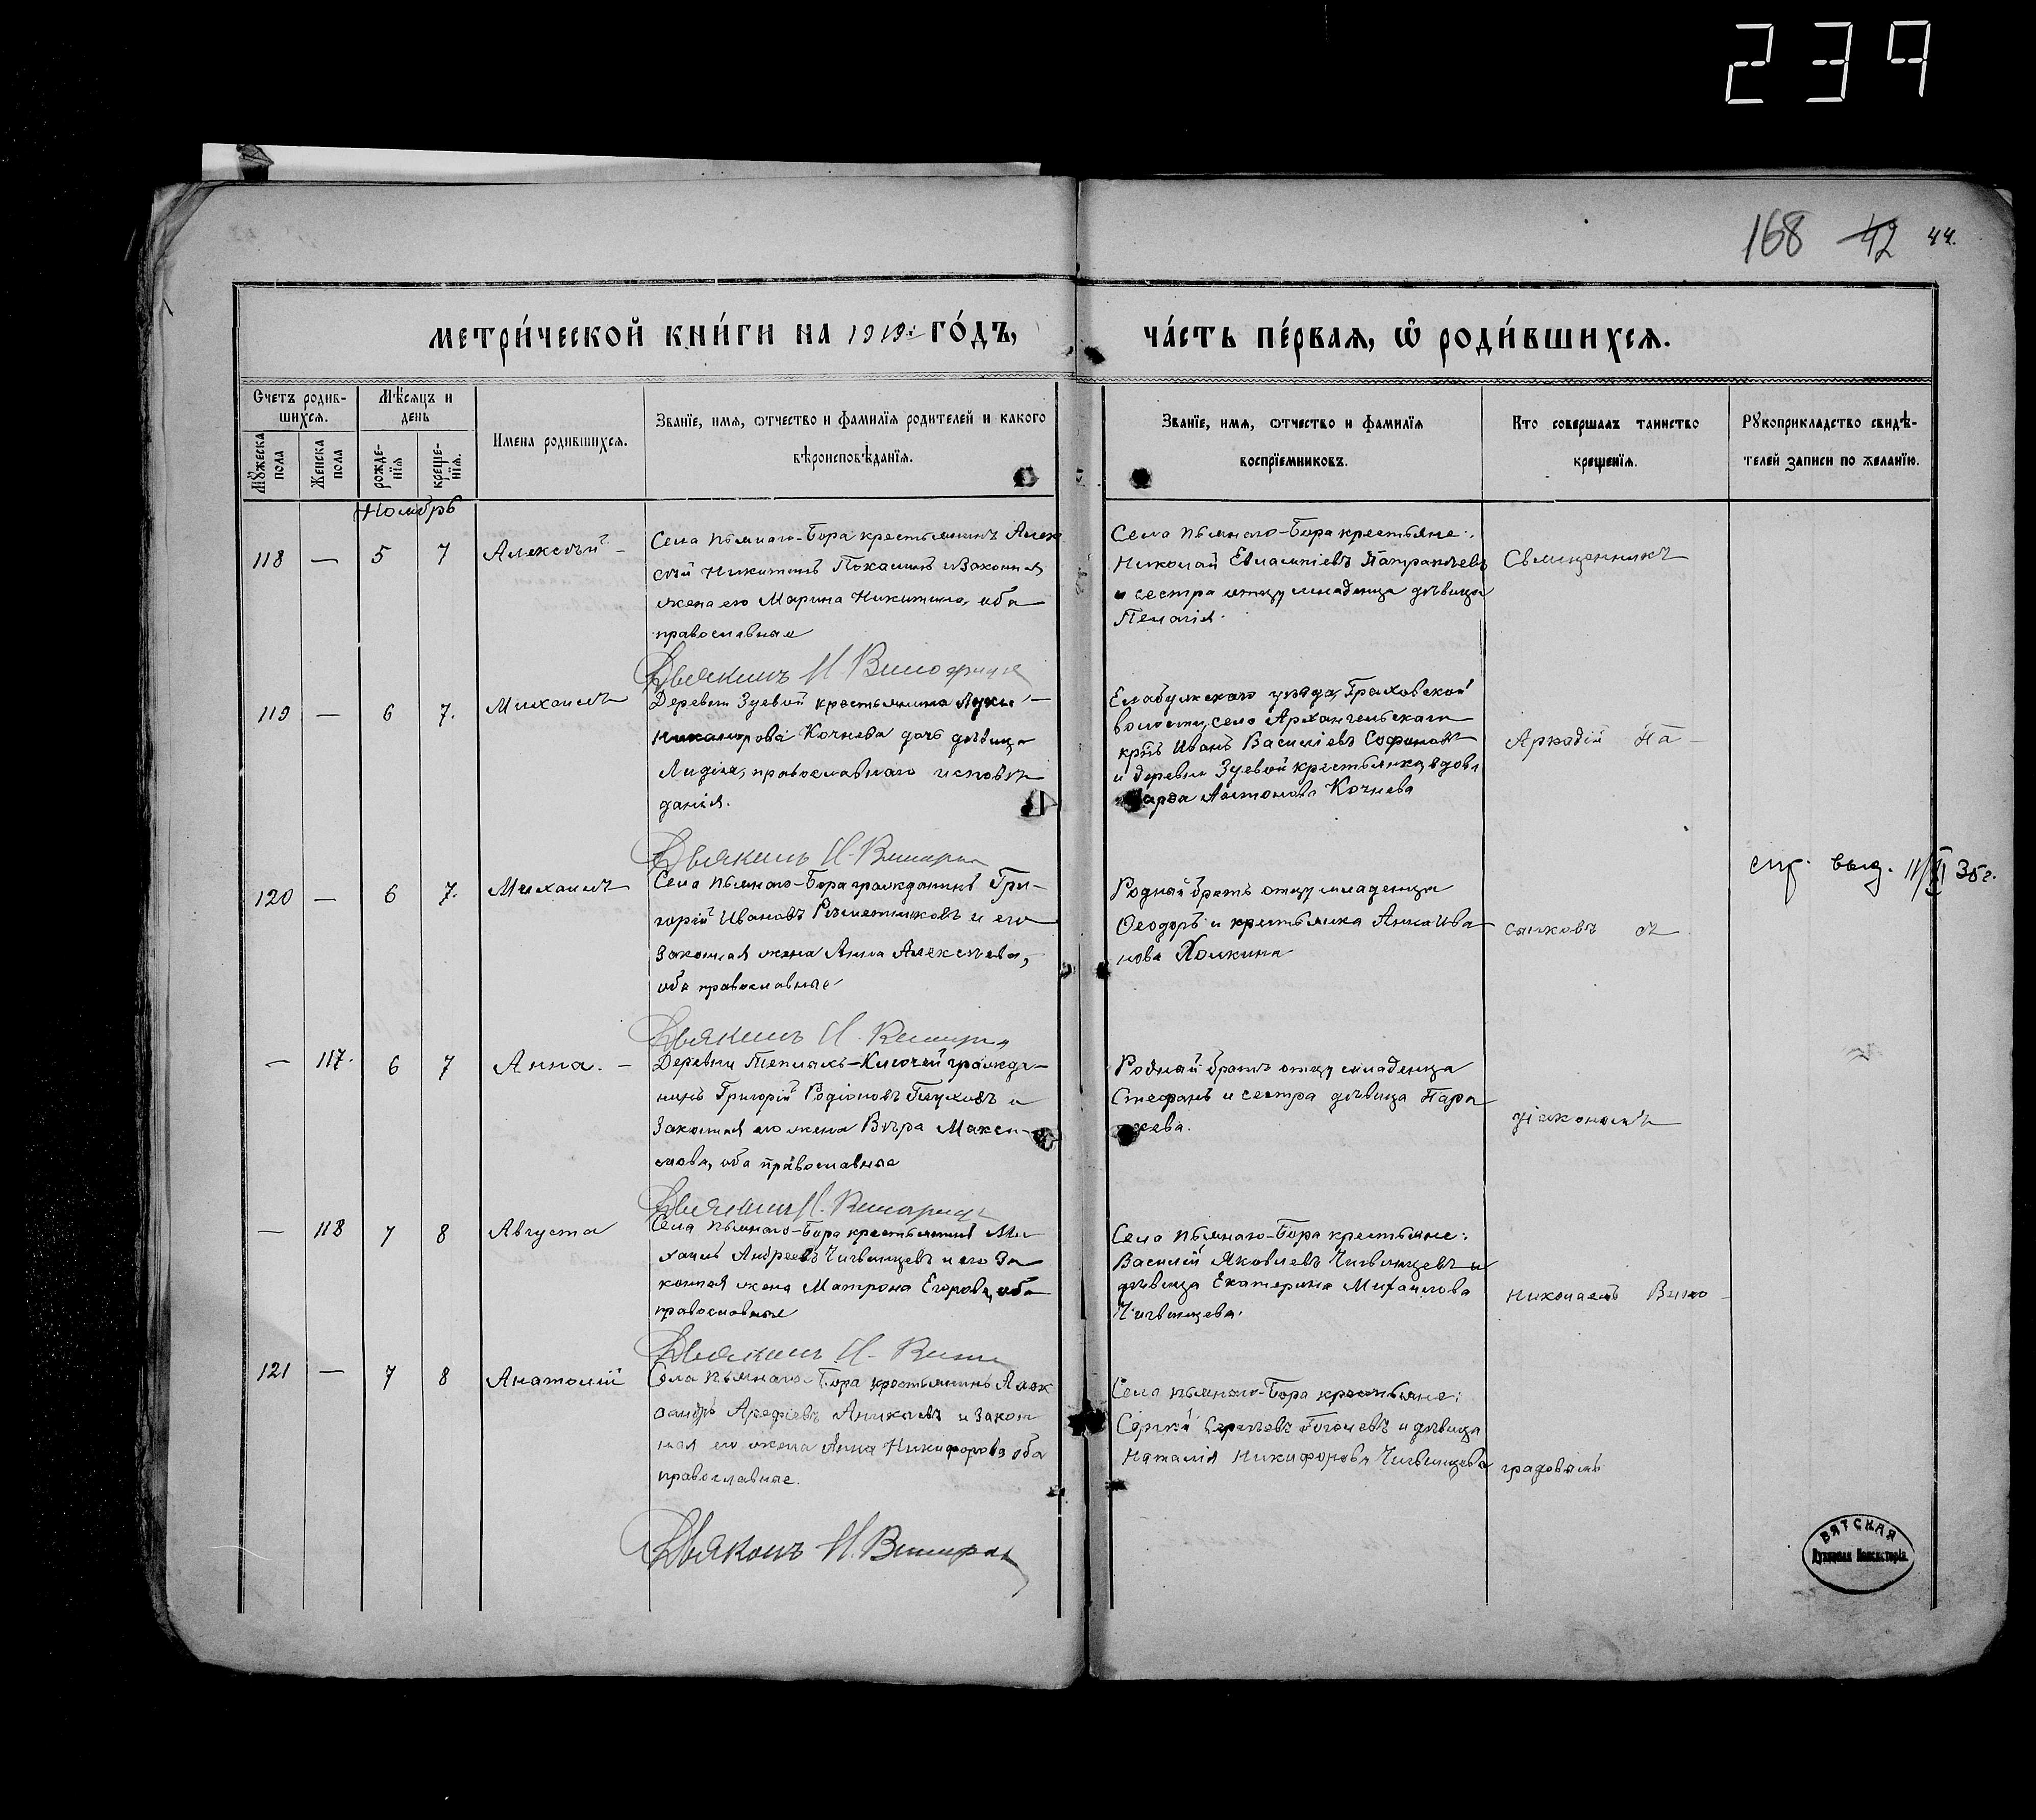 239
168 42 44.
МЕТРИ́ЧЕСКОЙ КНИ́ГИ НА 1919. ГО́ДЪ,
ЧА́СТЬ ПЕ́РВАЯ, Ѡ҆ РОДИ́ВШИХСЯ.
Счетъ родив-
шихся.
Мѣсяцъ и
день
Мꙋжеска
пола
Женска
пола
рожде-
нїя
креще-
нїя.
Имена родившихся.
Званїе, имя, ѿчество и фамилїя родителей и какого
вѣроисповѣданїя.
Званїе, имя, ѿчество и фамилїя
воспрїемниковъ.
Кто совершалъ таинство
крещенїя.
Рꙋкоприкладство свидѣ-
телей записи по желанїю.
Ноябрь
118 — 5 7 Алексѣй —
Села Пьянаго-Бора крестьянинъ Алек
сѣй Никитинъ и Законная
жена его Марина Никитина, оба
православные
Села Пьянаго-Бора крестьяне:
Николай Евлампіевъ
и сестра отцу младенца дѣвица
Пелагія.
Священникъ
Дьяконъ Н. Виноградовъ
119 — 6 7. Михаилъ
Деревни Зуевой крестьянина Луки
Никанорова Кочнева дочь дѣвица
Лидія, православнаго исповѣ
данія.
Елабужскаго уѣзда, Граховской
волости, село Архангельскаго
крнъ Иванъ Васильевъ Софоновъ
и деревни Зуевой крестьянка, вдова
Антонова Кочнева
Аркадій На-
Дьяконъ Н. Виноград
120 — 6 7. Михаилъ
Села Пьянаго-Бора гражданинъ Гри-
горій Ивановъ Рѣшетниковъ и его
Законная жена Анна Алексѣева,
оба православные
Родной братъ отцу младенца
Ѳеодоръ и крестьянка Анна Ива
нова Холкина
сынковъ съ
спр. выд. 11/XI 35 г.
Дьяконъ Н. Виноград
— 117. 6 7 Анна. —
Деревни гражда-
нинъ Григорій Родіоновъ Глуховъ и
Законная его жена Вѣра Макси-
мова, оба православные
Родной братъ отцу младенца
Стефанъ и сестра дѣвица Пара
скева.
діакономъ
Дьяконъ Н. Виноград
— 118 7 8 Августа
Села Пьянаго-Бора крестьянинъ Ми
хаилъ Андреевъ Чигвинцевъ и его За
конная жена Матрона Егорова, оба
православные
Село Пьянаго-Бора крестьяне:
Василій Яковлевъ Чигвинцевъ и
дѣвица Екатерина Михаилова
Чигвинцева.
Николаемъ Вино-
Дьяконъ Н. Вино
121 — 7 8 Анатолій
Села Пьянаго-Бора крестьянинъ Алек
сандръ Арефіевъ Аникаевъ и Закон
ная его жена Анна Никифорова оба
православные.
Села Пьянаго-Бора крестьяне:
Сергій Сергѣевъ и дѣвица
Наталія Никифорова Чигвинцева
градовымъ
Дьяконъ Н. Виноград
ВЯТСКАЯ
Духовная Консисторія.